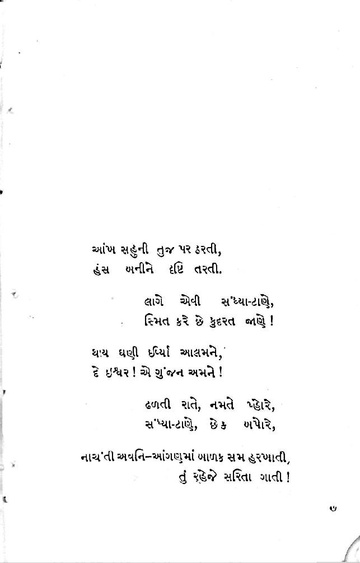 આંખ સહુની તુજ પર ઠરતી,
હંસ બનીને દૃષ્ટિ તરતી.
લાગે એવી સંધ્યા-ટાણે,
સ્મિત કરે છે કુદરત જાણે !
થાય ઘણી ઈર્ષ્યા આલમને,
દે ઇશ્વર ! એ ગુંજન અમને !
ઢળતી રાતે, નમતે પ્હોરે,
સંધ્યા-ટાણે, છેક બપોરે,
નાચંતી અવનિ-આંગણમાં બાળક સમ હરખાતી,
તું રહેજે સરિતા ગાતી !
૭